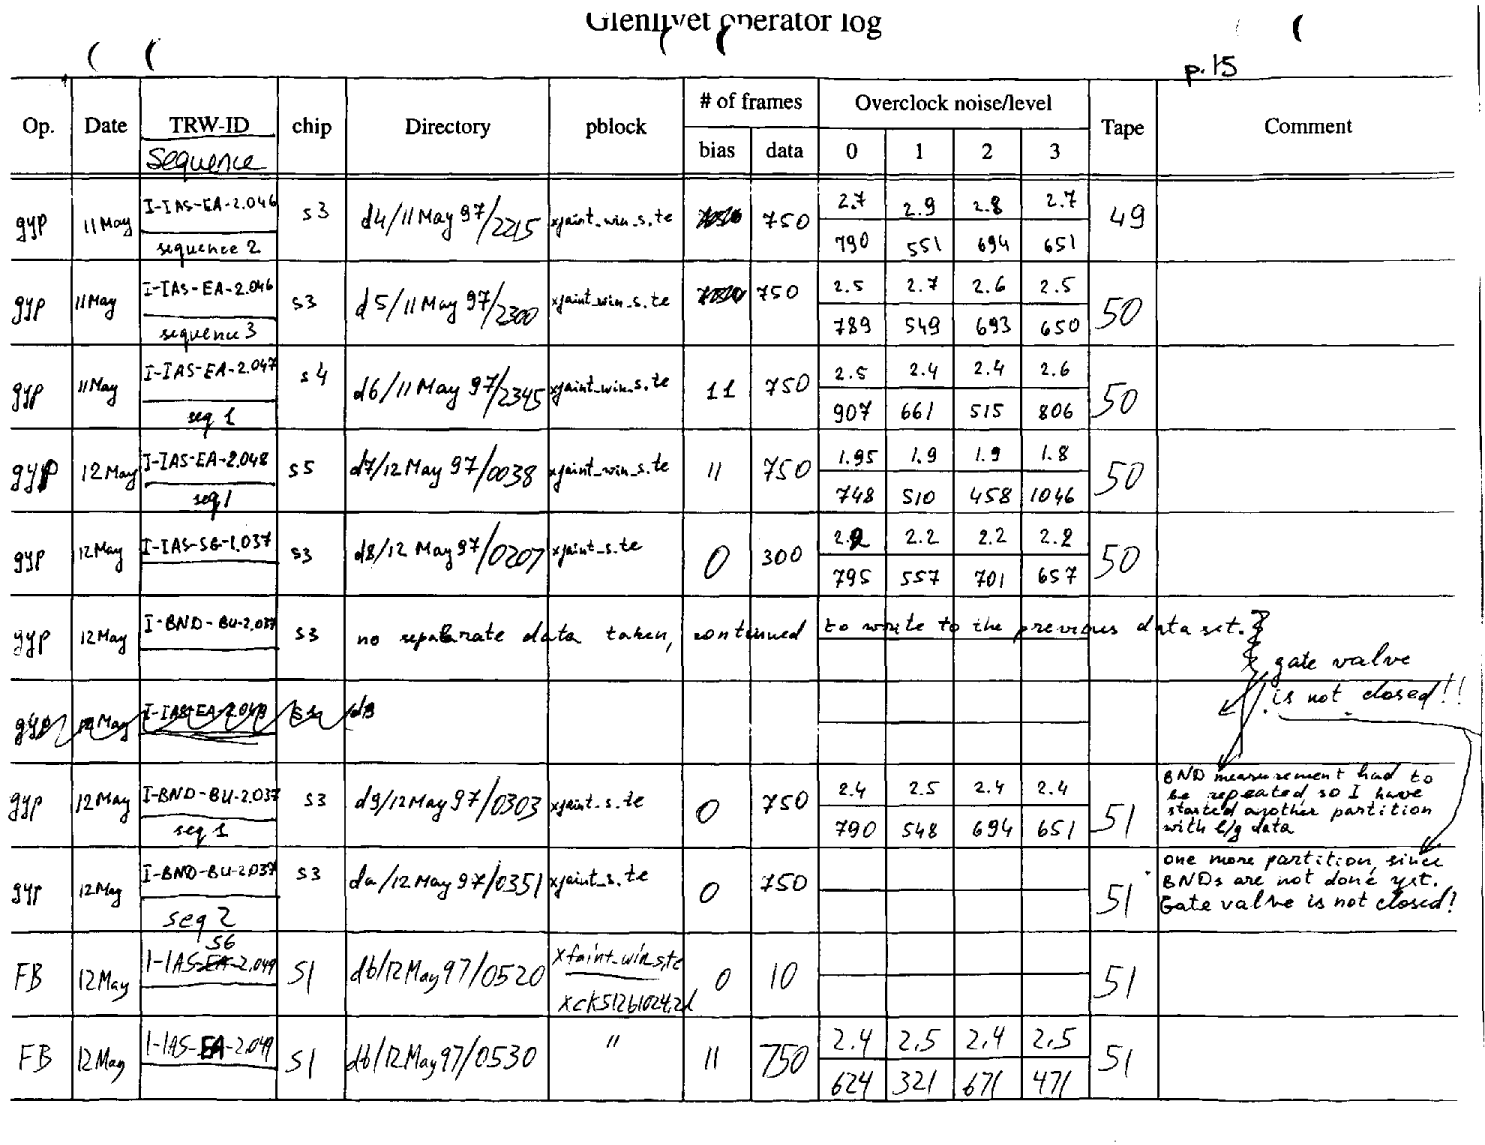 Glenlivet operator log
p. 15
Op. Date TRW-ID chip Directory pblock # of frames Overclock noise/level Tape Comment
sequence bias data 0 1 2 3
gyp 11 May I-IAS-EA-2.046 s3 d4/11 May 97/2215 xfaint_win_s.te 750 2.7 2.9 2.8 2.7 49
sequence 2 790 551 694 651
gyp 11 May I-IAS-EA-2.046 s3 d5/11 May 97/2300 xfaint_win_s.te 750 2.5 2.7 2.6 2.5 50
sequence 3 789 549 693 650
gyp 11 May I-IAS-EA-2.047 s4 d6/11 May 97/2345 xfaint_win_s.te 11 750 2.5 2.4 2.4 2.6 50
seq 1 907 661 515 806
gyp 12 May I-IAS-EA-2.048 s5 d7/12 May 97/0038 xfaint_win_s.te 11 750 1.95 1.9 1.9 1.8 50
seq 1 748 510 458 1046
gyp 12 May I-IAS-SG-1.037 s3 d8/12 May 97/0207 xfaint_s.te 0 300 2.2 2.2 2.2 50
795 557 701 657
gyp 12 May I-BND-BU-2.037 s3 no separate data taken, continued to write to the previous data set.
gate valve
is not closed!!
gyp 12 May I-IAS-EA-2.049 s1 d8
gyp 12 May I-BND-BU-2.037 s3 d9/12 May 97/0303 xfaint_s.te 0 750 2.4 2.5 2.4 2.4 51
seq 1 790 548 694 651
BND measurement had to
be repeated, so I have
started another partition
with e/g data
gyp 12 May I-BND-BU-2.037 s3 da/12 May 97/0351 xfaint_s.te 0 750 51
seq 2
one more partition, since
BNDs are not done yet.
Gate valve is not closed!
FB 12 May I-IAS-EA-2.049 S1 db/12 May 97/0520 xfaint_win_s.te 0 10 51
SG
FB 12 May I-IAS-EA-2.049 S1 db/12 May 97/0530 " 11 750 2.4 2.5 2.4 2.5 51
624 321 671 471